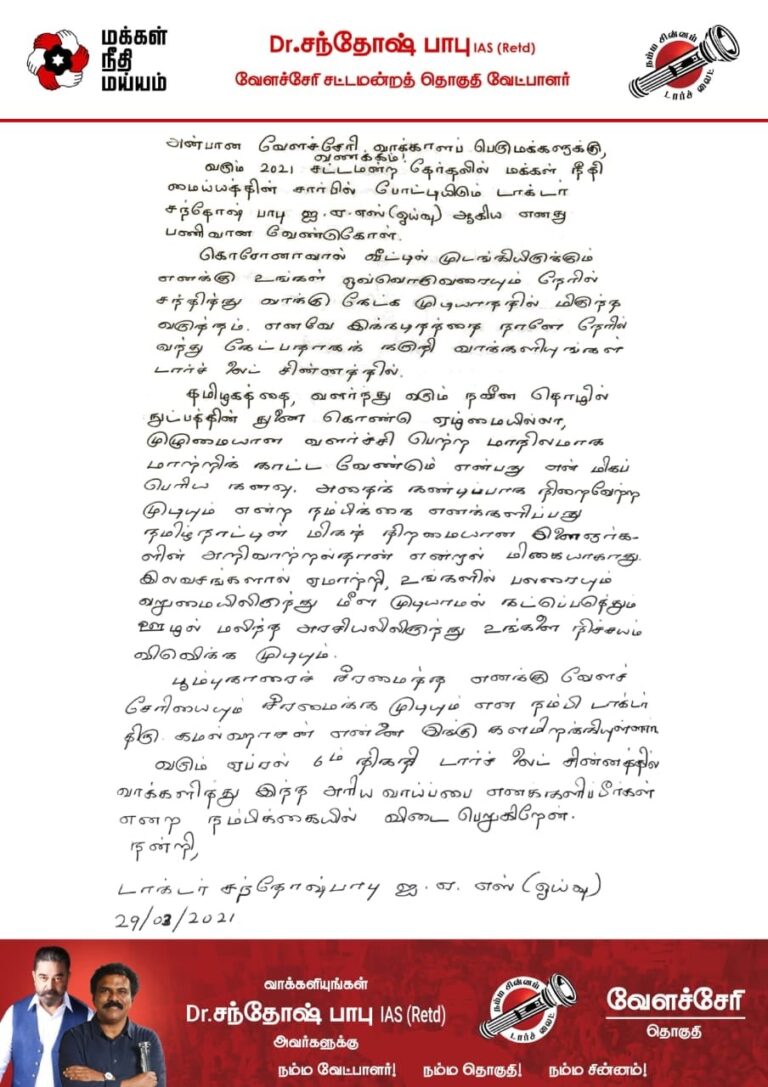 மக்கள்
நீதி
மய்யம்
Dr.சந்தோஷ் பாபு IAS (Retd)
வேளச்சேரி சட்டமன்றத் தொகுதி வேட்பாளர்
நம்ம சின்னம்
டார்ச் லைட்
அன்பான வேளச்சேரி வாக்காளப் பெருமக்களுக்கு,
வணக்கம்!
வரும் 2021 சட்டமன்ற தேர்தலில் மக்கள் நீதி
மைய்யத்தின் சார்பில் போட்டியிடும் டாக்டர்
சந்தோஷ் பாபு ஐ.ஏ.எஸ் (ஓய்வு) ஆகிய எனது
பணிவான வேண்டுகோள்.
கொரோனாவால் வீட்டில் முடங்கியிருக்கும்
எனக்கு உங்கள் ஒவ்வொருவரையும் நேரில்
சந்தித்து வாக்கு கேட்க முடியாததில் மிகுந்த
வருத்தம். எனவே இக்கடிதத்தை நானே நேரில்
வந்து கேட்பதாகக் கருதி வாக்களியுங்கள்
டார்ச் லைட் சின்னத்தில்.
தமிழகத்தை, வளர்ந்து வரும் நவீன தொழில்
நுட்பத்தின் துணை கொண்டு ஏழ்மையில்லா,
முழுமையான வளர்ச்சி பெற்ற மாநிலமாக
மாற்றிக் காட்ட வேண்டும் என்பது என் மிகப்
பெரிய கனவு. அதைக் கண்டிப்பாக நிறைவேற்ற
முடியும் என்ற நம்பிக்கை எனக்களிப்பது
தமிழ்நாட்டின் மிகத் திறமையான இளைஞர்க-
ளின் அறிவாற்றல்தான் என்றால் மிகையாகாது.
இலவசங்களால் ஏமாற்றி, உங்களில் பலரையும்
வறுமையிலிருந்து மீள முடியாமல் கட்டிப்படுத்தும்
ஊழல் மலிந்த அரசியலிலிருந்து உங்களை நிச்சயம்
விடுவிக்க முடியும்.
பூம்புகாரைச் சீரமைத்த எனக்கு வேளச்
சேரியையும் சீரமைக்க முடியும் என நம்பி டாக்டர்
திரு. கமலஹாசன் என்னை இங்கு களமிறக்கியுள்ளார்.
வரும் ஏப்ரல் 6ம் திகதி டார்ச் லைட் சின்னத்தில்
வாக்களித்து இந்த அரிய வாய்ப்பை எனக்களிப்பீர்கள்
என்ற நம்பிக்கையில் விடை பெறுகிறேன்.
நன்றி,
டாக்டர் சந்தோஷ்பாபு ஐ.ஏ.எஸ் (ஓய்வு)
29/03/2021
வாக்களியுங்கள்
Dr.சந்தோஷ் பாபு IAS (Retd)
அவர்களுக்கு
நம்ம சின்னம்
டார்ச் லைட்
வேளச்சேரி
தொகுதி
நம்ம வேட்பாளர்! நம்ம தொகுதி! நம்ம சின்னம்!